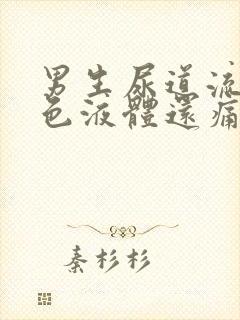 男生尿道流
色液體還痛
秦杉杉